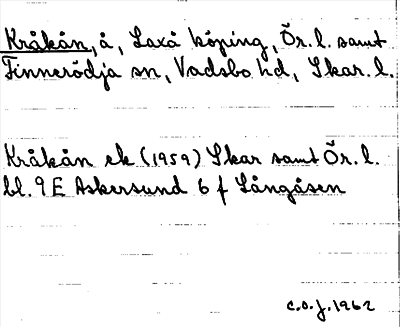 Kråkån, å, Laxå köping, Ör. l. samt
Finnerödja sn, Vadsbo hd, Skar. l.
Kråkån ek (1959) Skar samt Ör. l.
bl. 9 E Askersund 6 f Långåsen
C.O.J. 1962